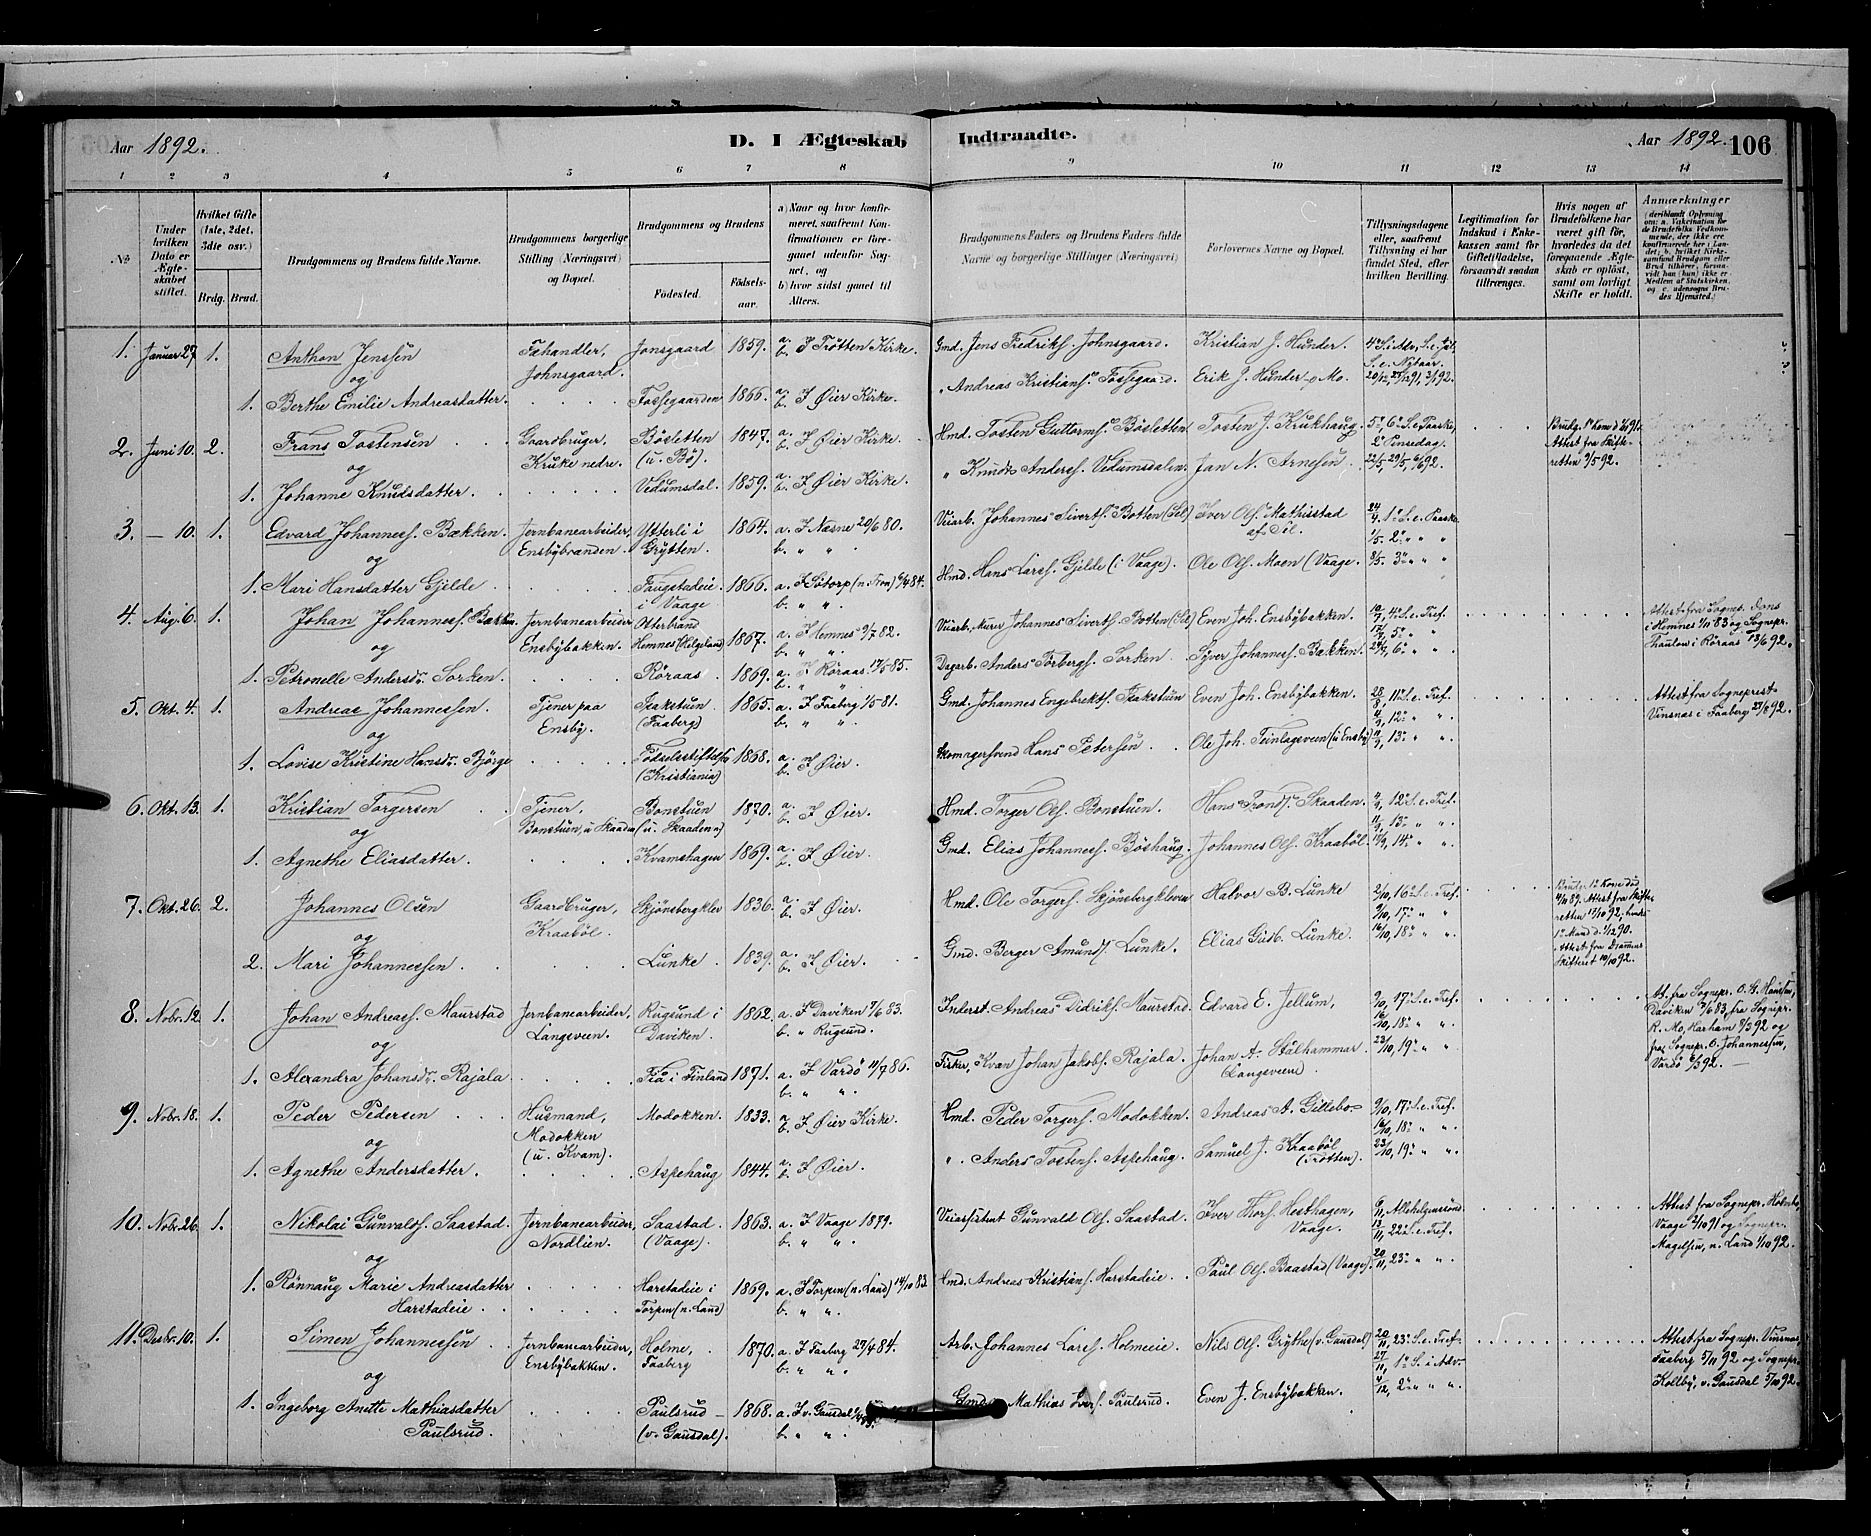 Aar 1892.
D. I Ægteskab Indtraadte.
Aar 1892. 106
1 2 3 4 5 6 7 8 9 10 11 12 13 14
No.
Under hvilken Dato er Ægteskabet stiftet.
Hvilket Gifte (1ste, 2det, 3die osv.)
Brdg. Brud.
Brudgommens og Brudens fulde Navne.
Brudgommens borgerlige Stilling (Næringsvei) og Bopæl.
Brudgommens og Brudens
Fødested.
Fødselsaar.
a) Naar og hvor konfirmeret, saafremt Konfirmationen er foregaaet udenfor Sognet, og
b) hvor sidst gaaet til Alters.
Brudgommens Faders og Brudens Faders fulde Navne og borgerlige Stillinger (Næringsvei)
Forlovernes Navne og Bopæl.
Tillysningsdagene eller, saafremt Tillysning ei har fundet Sted, efter hvilken Bevilling.
Legitimation for Indskud i Enkekassen samt for Giftetilladelse, forsaavidt saadan tiltrænges.
Hvis nogen af Brudefolkene har været gift før, hvorledes da det foregaaende Ægteskab er opløst, samt om lovligt Skifte er holdt.
Anmærkninger
1. Januar 27 1. Anthon Jenssen Fæhandler, Johnsgaard. Jonsgaard 1859. a. b. I Trötten Kirke. Gmd. Jens Fredriks. Johnsgaard. Kristian J. Hunder.
og
1. Berthe Emilie Andreasdatter. Fossegaarden 1866. a. b. I Øier Kirke. " Andreas Kristians. Fossegaard. Erik J. Hunder - Mo. 20/12, 27/12 91, 3/1 92.
2. Juni 10. 2. Frans Tostensen Gaardbruger, Kruke nedre. Bösletten (u. Bö). 1847. a. b. I Øier Kirke. Hmd. Tosten Guttorms. Bösletten. Tosten J. Krukhaug. 5te, 6te S. e. Paaske, 2den Pinsedag. 22/5, 29/5, 6/6 92. Attest fra Skifteretten 9/5 92.
og
1. Johanne Knudsdatter. Vedumsdal. 1859. a. b. I Øier Kirke. " Knud Anders. Vedumsdalen. Jan N. Arnesen.
3. — 10. 1. Edvard Johanness. Bækken. Jernbanearbeider, Ensbybranden. Ytterli i Grytten. 1864. a. I Næsne 20/6 80. b. " " Veiarb. Johannes Siverts. Botten (Sel) Iver Ols. Mathisstad af Sel. 24/4, 1ste S. e. Paaske 1/5 2den " " 8/5 3die " "
og
1. Mari Hansdatter Gjelde Faugstadeie i Vaage 1866. a. I Sötorp (n. Fron) 6/4 84. b. " " Hmd. Hans Lars. Gjelde (i Vaage). Ole Ols. Moen (Vaage.
4. Aug. 6. 1. Johan Johanness. Bækken Jernbanearbeider Ensbybakken. Otterbrand Hemnes (Helgeland) 1867. a. I Hemnes 9/7 82. b. " " Veiarb., Murer Johannes Siverts. Botten (Sel) Even Joh. Ensbybakken. 10/7, 4de S. e. Tref. 17/7, 5te " " 24/7, 6te " " Attest fra Sognep. Døns i Hemnes 1/10 83 og Sognepr. Thaulow i Röraas 13/6 92.
og
1. Petronelle Andersdr. Sorken. Röraas 1869. a. I Röraas 17/5 85. b. " " Dagarb. Anders Torbergs. Sorken. Syver Johanness. Bækken.
5. Okt. 4. 1. Andreas Johannessen. Tjener paa Ensby. Isakstuen (Faaberg) 1865. a. I Faaberg 1/5 81. b. " " Gmd. Johannes Engebrekts. Isakstuen Even Joh. Ensbybakken. 28/8, 11te S. e. Tref. 4/9, 12te " " 11/9, 13de " " Attest fra Sogneprest Vinsnes i Faaberg 23/8 92.
og
1. Lovise Kristine Hansdr. Björge Födselsstiftelse (Kristiania) 1868. a. b. I Øier. Skomagersvend Hans Petersen. Ole Joh. Teinlagsveen (u Ensby)
6. Okt. 13. 1. Kristian Torgersen Tjener, Bonstuen, u Skaaden Bonstuen (u. Skaaden) 1870. a. b. I Øier. Hmd. Torger Ols. Bonstuen. Hans Tronds. Skaaden. 4/9, 12te S. e. Tref. 11/9, 13de " " 18/9, 14de " "
og
1. Agnethe Eliasdatter. Kvamshagen 1869. a. b. I Øier. Gmd. Elias Johanness. Böshaug. Johannes Ols. Kraaböl.
7. Okt. 26. 2. Johannes Olsen Gaardbruger, Kraaböl. Skjönsbergklev 1836. a. b. I Øier. Hmd. Ole Torgers. Skjönsbergkleven Halvor B. Lunke 2/10, 16de S. e. Tref. 9/10, 17de " " 16/10, 18de " " Brudg. 1ste Kone död 4/11 89. Attest fra Skifteretten 17/10 92, hendes 1ste Mand d. 1/12 90. Attest fra Drammens Skifteret 10/10 92.
og
2. Mari Johannessen. Lunke. 1839. a. b. I Øier. Gmd. Berger Amunds. Lunke. Elias Gudb. Lunke.
8. Nobr. 12. 1. Johan Andreass. Maurstad Jernbanearbeider, Langsveen. Rugsund i Daviken. 1862. a. I Daviken 7/6 83. b. " Rugsund. Inderst. Andreas Didriks. Maurstad. Edvard E. Jellum, 9/10, 17de S. e. Tref. 16/10, 18de " " 23/10, 19de " " At. fra Sognepr. Daviken 7/6 83, fra Sognepr. R. Mo, Harham 9/3 92 og fra Sognepr. O. Johannessen, Vardö 6/3 92.
og
1. Alexandra Johansdr. Rajala i Finland 1871. a. I Vardö 11/7 86. b. " " Fisker, Kvæn Johan Jakobs. Rajala. Johan A. Stålhammar Langsveen.
9. Nobr. 18. 1. Peder Pedersen Husmand, Modokken (u. Kvam). Modokken. 1833. a. b. I Øier Kirke. Hmd. Peder Torgers. Modokken. Andreas A. Gillebo 9/10, 17de S. e. Tref. 16/10, 18de " " 23/10, 19de " "
og
1. Agnethe Andersdatter. Aspehaug 1844. a. b. I Øier. " Anders Tostens. Aspehaug. Samuel J. Kraaböl (Trötten).
10. Nobr. 26. 1. Nikolai Gunvalds. Saastad. Jernbanearbeider, Nordlien. Saastad (Vaage). 1863. a. I Vaage 1879. b. " " Veiassistent Gunvald Ols. Saastad. Iver Thors. Hesthagen, Vaage. 6/11, Allehelgenssönd. 13/11, 22de S. e. Tref. 20/11, 23de " " Attest fra Sognepr. Holmbo, Vaage 2/10 91 og Sognepr. Magelsen, n. Land 1/10 92.
og
1. Rönnaug Marie Andreasdatter Harstadeie Harstadeie i Torpen (n. Land) 1869. a. I Torpen (n. Land) 14/10 83. b. " " Hmd. Andreas Kristians. Harstadeie. Paul Ols. Baastad (Vaage).
11. Desbr. 10. 1. Simen Johannessen Jernbanearbeider, Ensbybakken. Holme, Faaberg 1870. a. I Faaberg 27/4 84. b. " " Arb. Johannes Lars. Holmeie. Nils Ols. Grythe (v. Gausdal) 20/11, 23de S. e. Tref. 27/11, 1ste S. i Adv. 4/12, 2den " " Attest fra Sognepr. Vinsnes, Faaberg 5/11 92 og Sognepr. Kolby, v. Gausdal 5/10 92.
og
1. Ingeborg Anette Mathiasdatter Paulsrud. Paulsrud (v. Gausdal). 1868. a. I v. Gausdal b. " " Gmd. Mathias Ivers. Paulsrud. Even J. Ensbybakken.